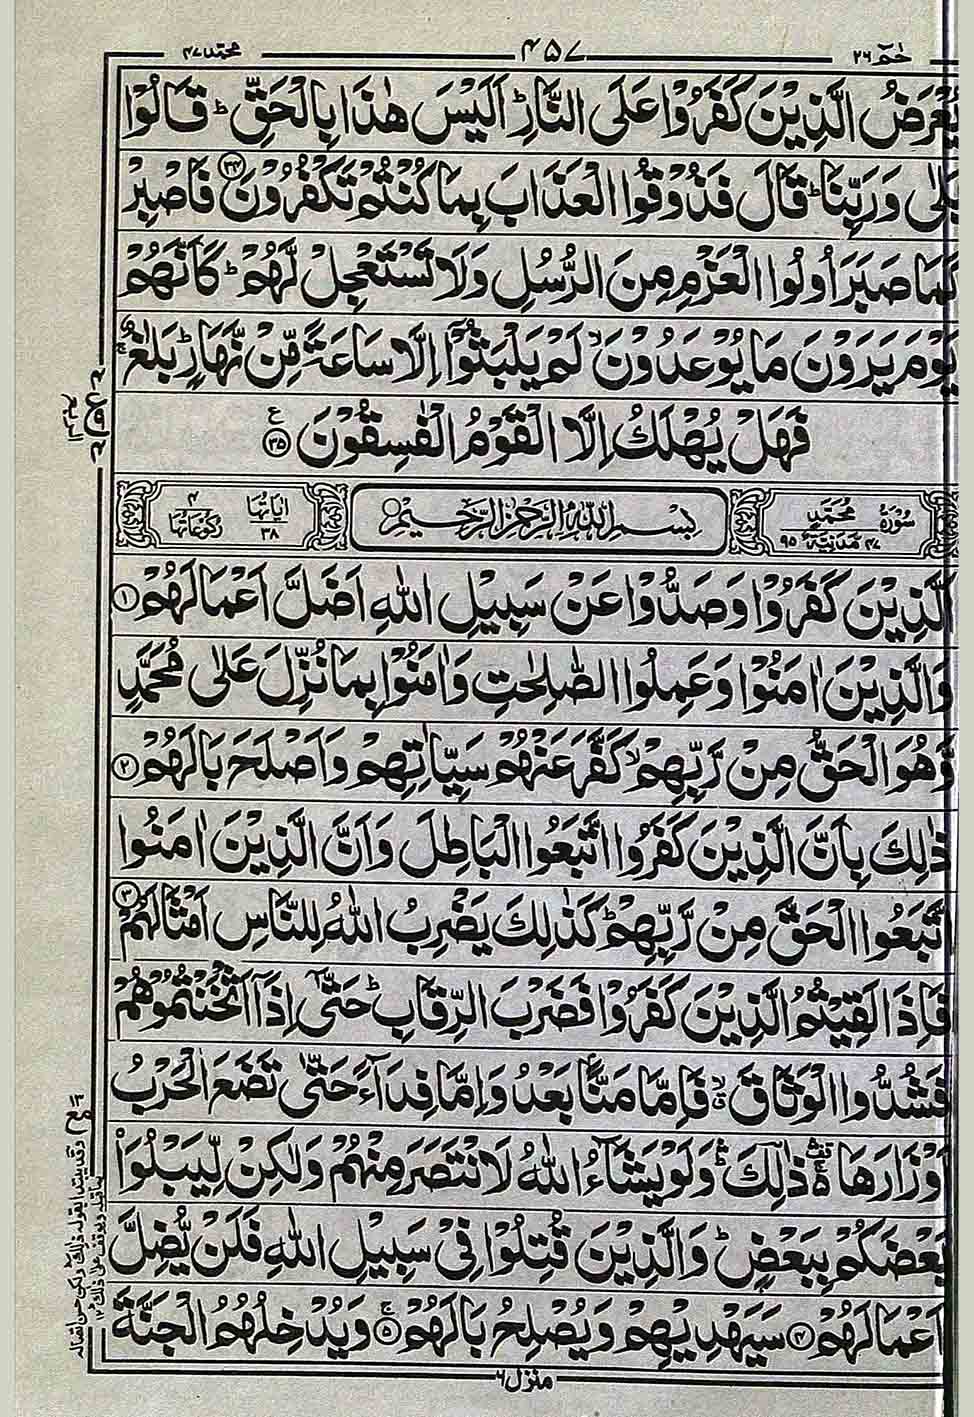 حٰمٓ ٢٦
٤٥٧
محمد ٤٧
يُعْرَضُ الَّذِيْنَ كَفَرُوْا عَلَى النَّارِ ؕ اَلَيْسَ هٰذَا بِالْحَقِّ ؕ قَالُوْا
بَلٰى وَرَبِّنَا ؕ قَالَ فَذُوْقُوا الْعَذَابَ بِمَا كُنْتُمْ تَكْفُرُوْنَ ۝٣٤ فَاصْبِرْ
كَمَا صَبَرَ اُولُوا الْعَزْمِ مِنَ الرُّسُلِ وَلَا تَسْتَعْجِلْ لَّهُمْ ؕ كَاَنَّهُمْ
يَوْمَ يَرَوْنَ مَا يُوْعَدُوْنَ ۙ لَمْ يَلْبَثُوْۤا اِلَّا سَاعَةً مِّنْ نَّهَارٍ ؕ بَلٰغٌ ۚ
فَهَلْ يُهْلَكُ اِلَّا الْقَوْمُ الْفٰسِقُوْنَ ۝٣٥ ع
سُوْرَةُ مُحَمَّدٍ ٤٧ مَدَنِيَّةٌ ٩٥
بِسْمِ اللهِ الرَّحْمٰنِ الرَّحِيْمِ
اٰيَاتُهَا ٣٨
رُكُوْعَاتُهَا ٤
اَلَّذِيْنَ كَفَرُوْا وَصَدُّوْا عَنْ سَبِيْلِ اللهِ اَضَلَّ اَعْمَالَهُمْ ۝١
وَالَّذِيْنَ اٰمَنُوْا وَعَمِلُوا الصّٰلِحٰتِ وَاٰمَنُوْا بِمَا نُزِّلَ عَلٰى مُحَمَّدٍ
وَّهُوَ الْحَقُّ مِنْ رَّبِّهِمْ ۙ كَفَّرَ عَنْهُمْ سَيِّاٰتِهِمْ وَاَصْلَحَ بَالَهُمْ ۝٢
ذٰلِكَ بِاَنَّ الَّذِيْنَ كَفَرُوا اتَّبَعُوا الْبَاطِلَ وَاَنَّ الَّذِيْنَ اٰمَنُوا
اتَّبَعُوا الْحَقَّ مِنْ رَّبِّهِمْ ؕ كَذٰلِكَ يَضْرِبُ اللهُ لِلنَّاسِ اَمْثَالَهُمْ ۝٣
فَاِذَا لَقِيْتُمُ الَّذِيْنَ كَفَرُوْا فَضَرْبَ الرِّقَابِ ؕ حَتّٰۤى اِذَاۤ اَثْخَنْتُمُوْهُمْ
فَشُدُّوا الْوَثَاقَ ۙ فَاِمَّا مَنًّۢا بَعْدُ وَاِمَّا فِدَآءً حَتّٰى تَضَعَ الْحَرْبُ
اَوْزَارَهَا ۛ ذٰلِكَ ؕ وَلَوْ يَشَآءُ اللهُ لَانْتَصَرَ مِنْهُمْ وَلٰكِنْ لِّيَبْلُوَا۟
بَعْضَكُمْ بِبَعْضٍ ؕ وَالَّذِيْنَ قُتِلُوْا فِيْ سَبِيْلِ اللهِ فَلَنْ يُّضِلَّ
اَعْمَالَهُمْ ۝٤ سَيَهْدِيْهِمْ وَيُصْلِحُ بَالَهُمْ ۚ ۝٥ وَيُدْخِلُهُمُ الْجَنَّةَ
منزل ٦